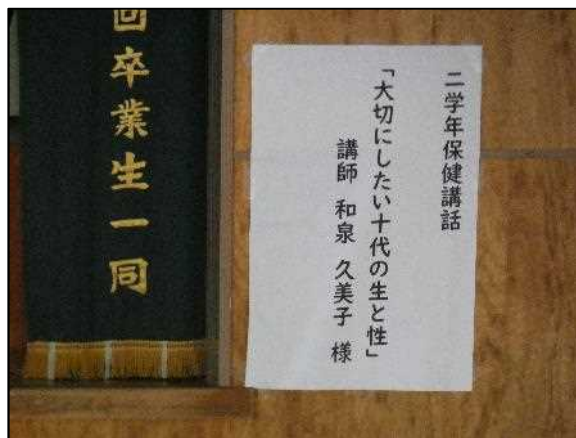 二学年保健講話
「大切にしたい十代の生と性」
講師 和泉 久美子 様
回卒業生一同